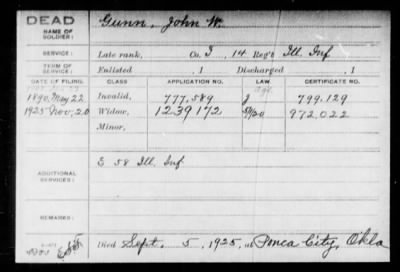 DEAD
NAME OF SOLDIER: Gunn, John W.
SERVICE: Late rank, Co. I, 14 Reg't Ill. Inf
TERM OF SERVICE: Enlisted , 1 Discharged , 1
DATE OF FILING. CLASS APPLICATION NO. LAW CERTIFICATE NO.
1890, May 22 Invalid, 777.589 J 799.129
1925 Nov. 20 Widow, 1239172 972.022
Minor,
ADDITIONAL SERVICES: E 58 Ill. Inf
REMARKS:
Died Sept. 5, 1925, at Ponca City, Okla